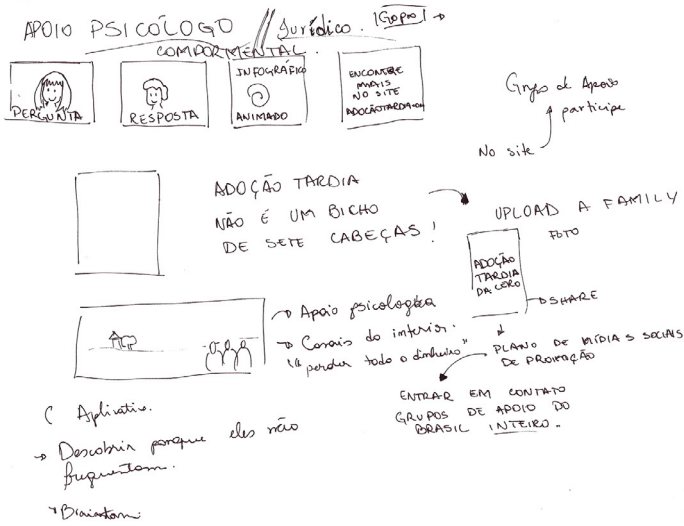 APOIO PSICÓLOGO // Jurídico.
COMPORMENTAL.
PERGUNTA
RESPOSTA
INFOGRÁFICO
ANIMADO
ENCONTRE
MAIS
NO SITE
Grupo de Apoio
participe
No site
ADOÇÃO TARDIA
NÃO É UM BICHO
DE SETE CABEÇAS!
UPLOAD A FAMILY
FOTO
ADOÇÃO
TARDIA
SHARE
→ Apoio psicológica
→ Casais do interior.
perder todo o dinheiro"
PLANO DE MÍDIAS SOCIAIS
DE PROMOÇÃO
ENTRAR EM CONTATO
GRUPOS DE APOIO DO
BRASIL INTEIRO.
Aplicativo.
→ Descobrir porque eles não
frequentam.